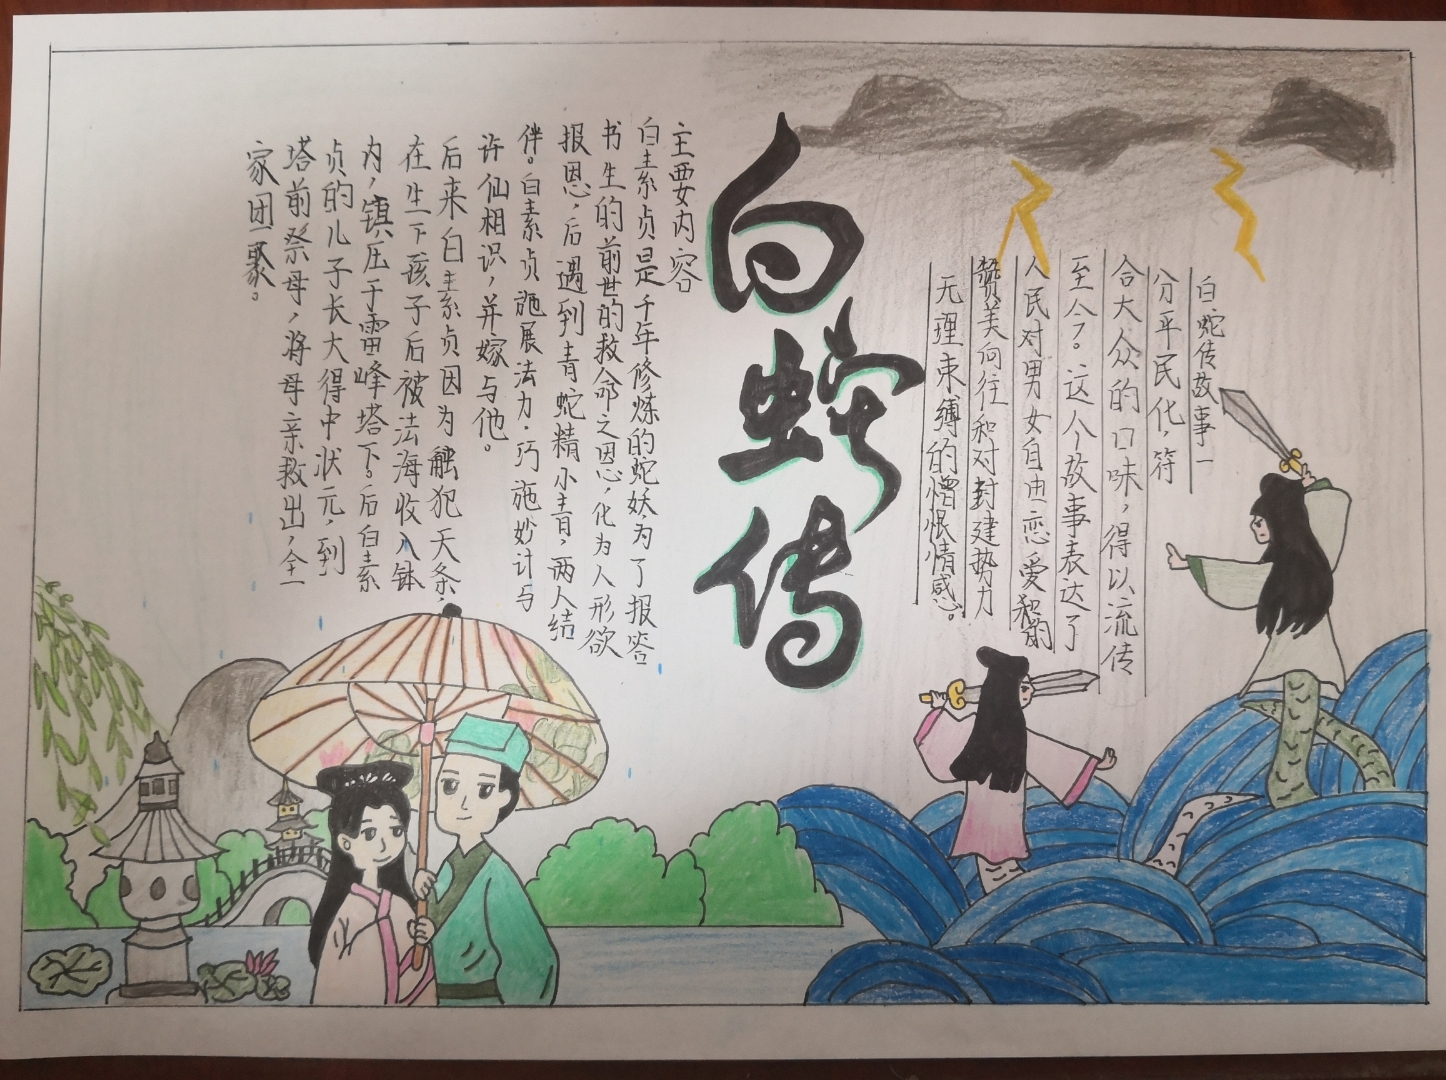 白蛇传故事一
分平民化，符
合大众的口味，得以流传
至今。这个故事表达了
人民对男女自由恋爱的
赞美向往和对封建势力
无理束缚的憎恨情感。
白蛇传
主要内容
白素贞是千年修炼的蛇妖，为了报答
书生的前世的救命之恩，化为人形欲
报恩，后遇到青蛇精小青，两人结
伴。白素贞施展法力，巧施妙计与
许仙相识，并嫁与他。
后来白素贞因为触犯天条，
在生下孩子后被法海收入钵
内，镇压于雷峰塔下。后白素
贞的儿子长大得中状元，到
塔前祭母，将母亲救出，全
家团聚。